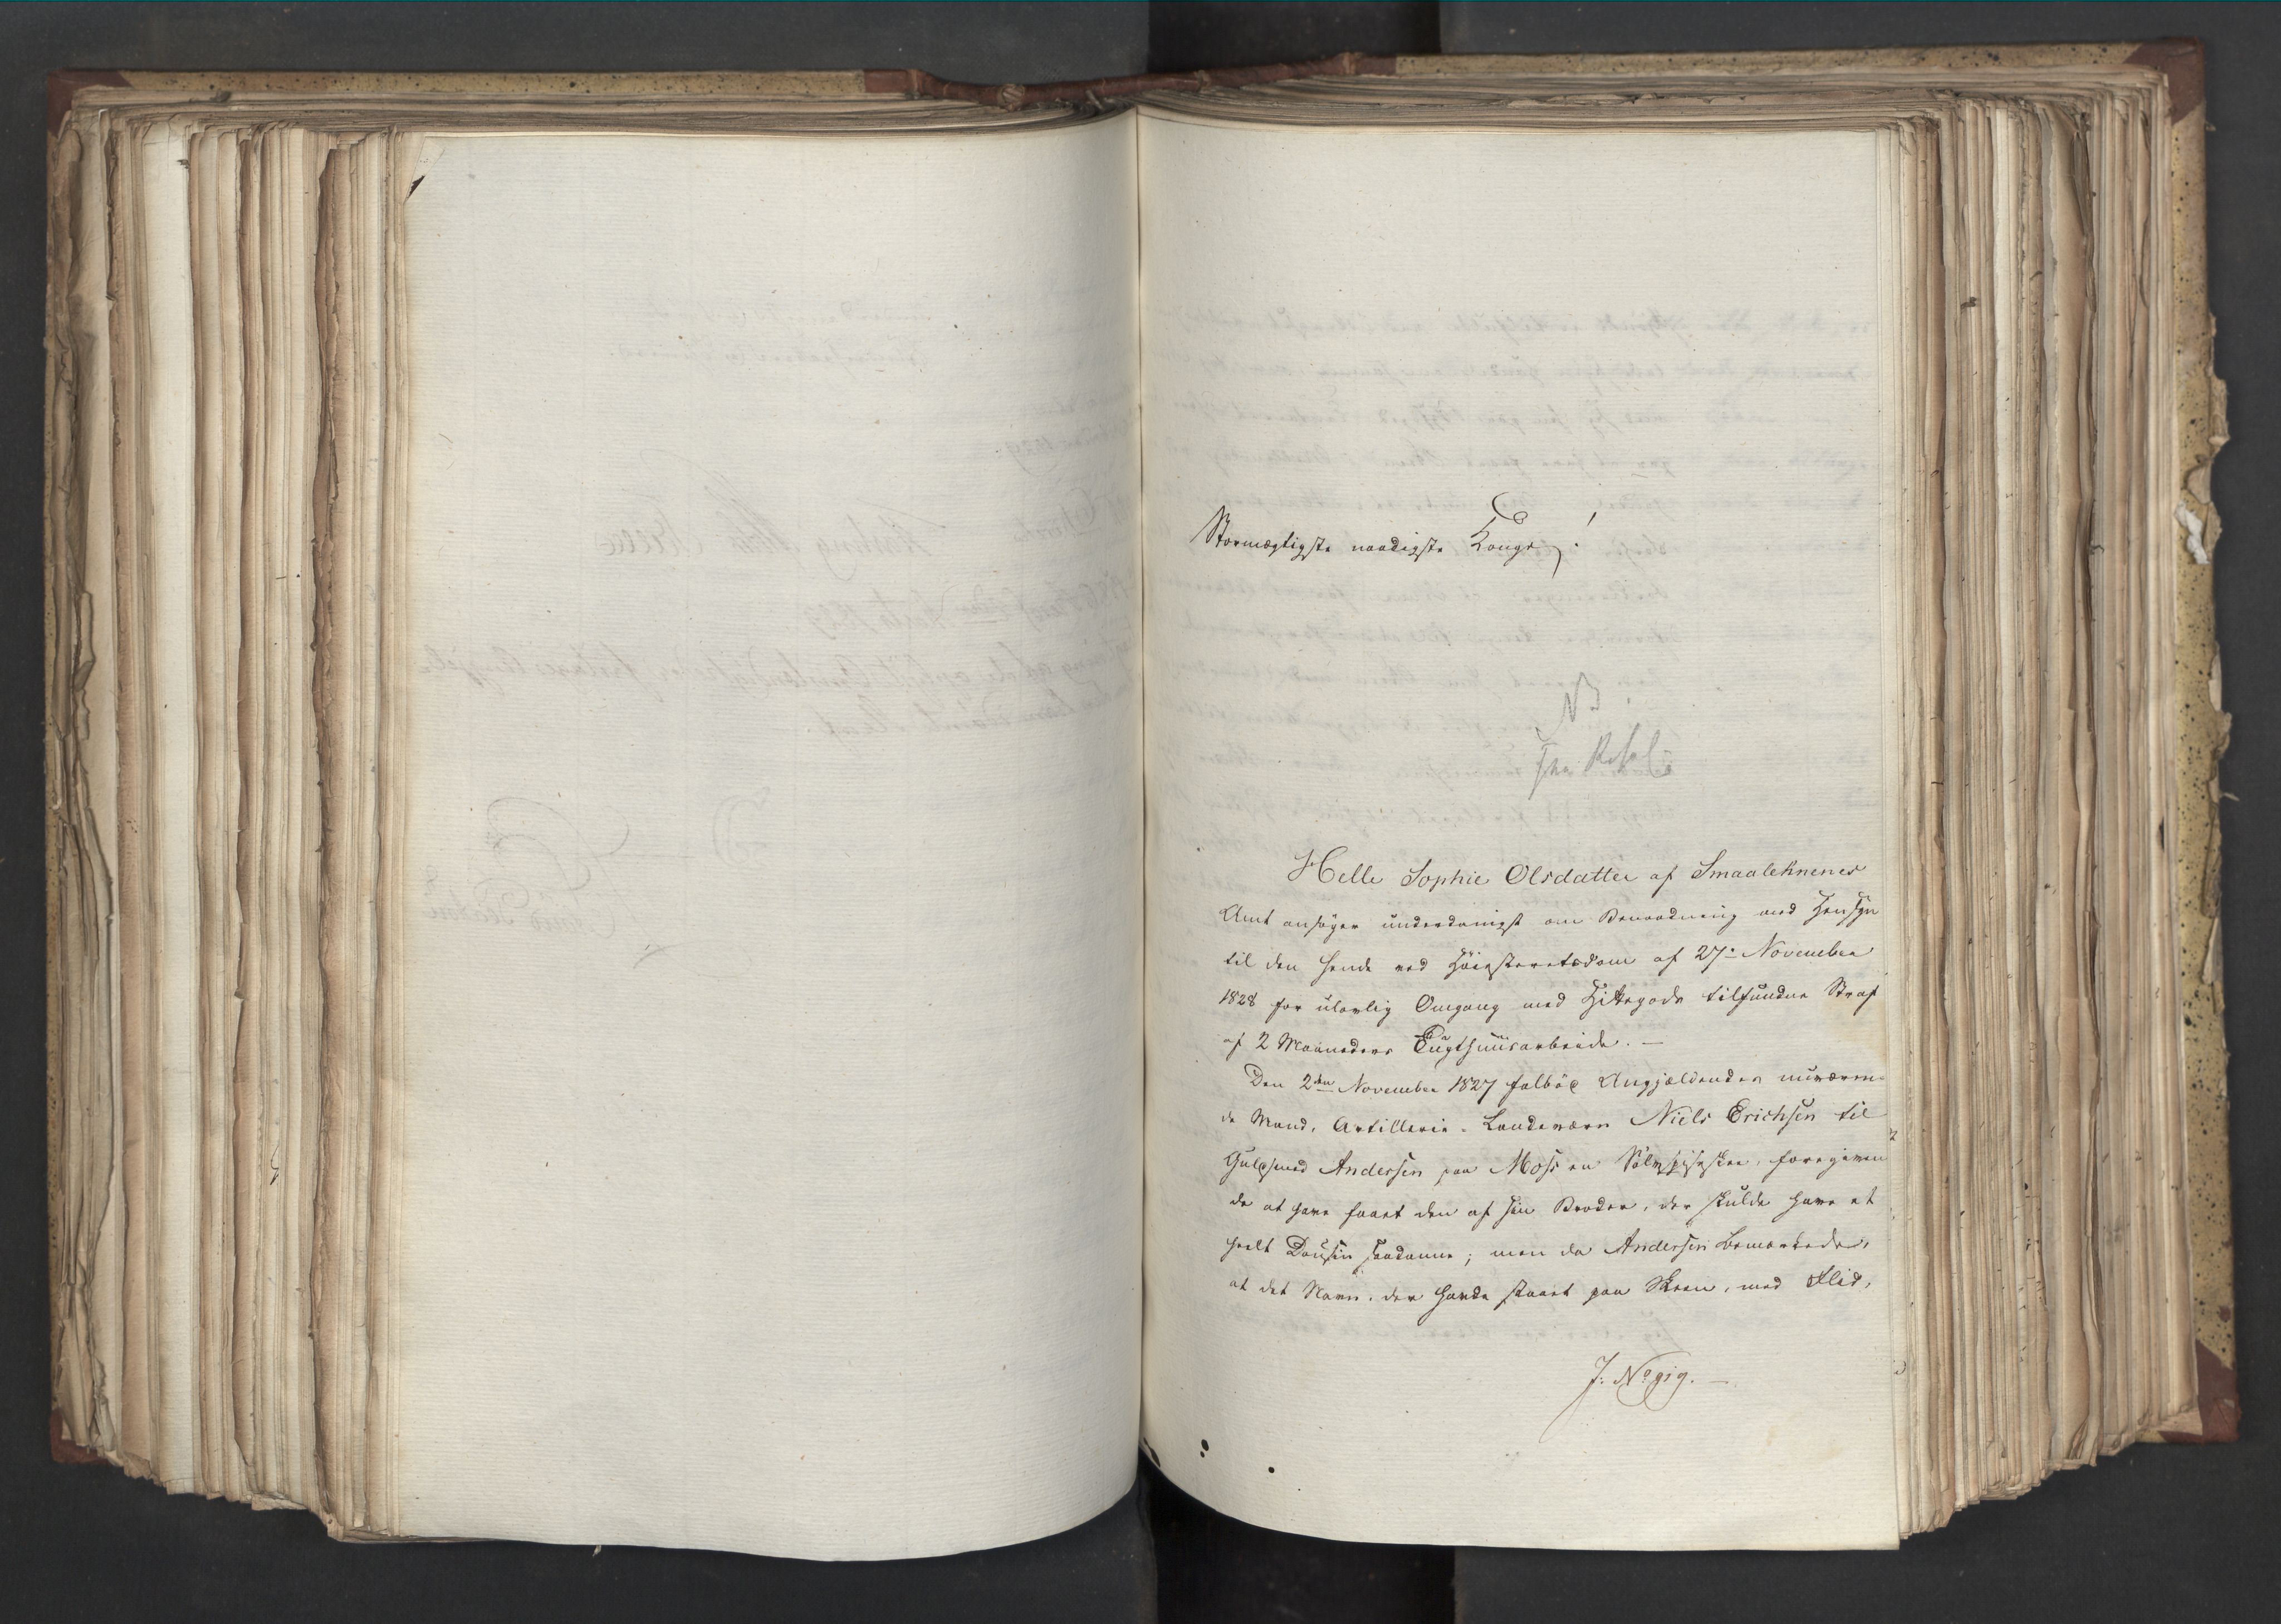 Stormægtigste naadigste Konge!
NB.
Helle Sophie Olsdatter af Smaalehnenes
Amt ansøger underdanigst om Benaadning med Hensyn
til den hende ved Høiesteretsdom af 27: November
1828 for ulovlig Omgang med Hittegods tilfundne Straf
af 2 Maaneders Tugthuusarbeide. —
Den 2den November 1827 falbød Angjældendes nuværen-
de Mand, Artillerie-Landeværn Niels Erichsen til
Guldsmed Andersen paa Moss en Sølvspiseskee, foregiven
de at have faaet den af sin Broder, der skulde have et
heelt Dousin saadanne; men da Andersen bemærkede,
at det Navn, der havde staaet paa Skeen, med Flid,
J. No 919. —